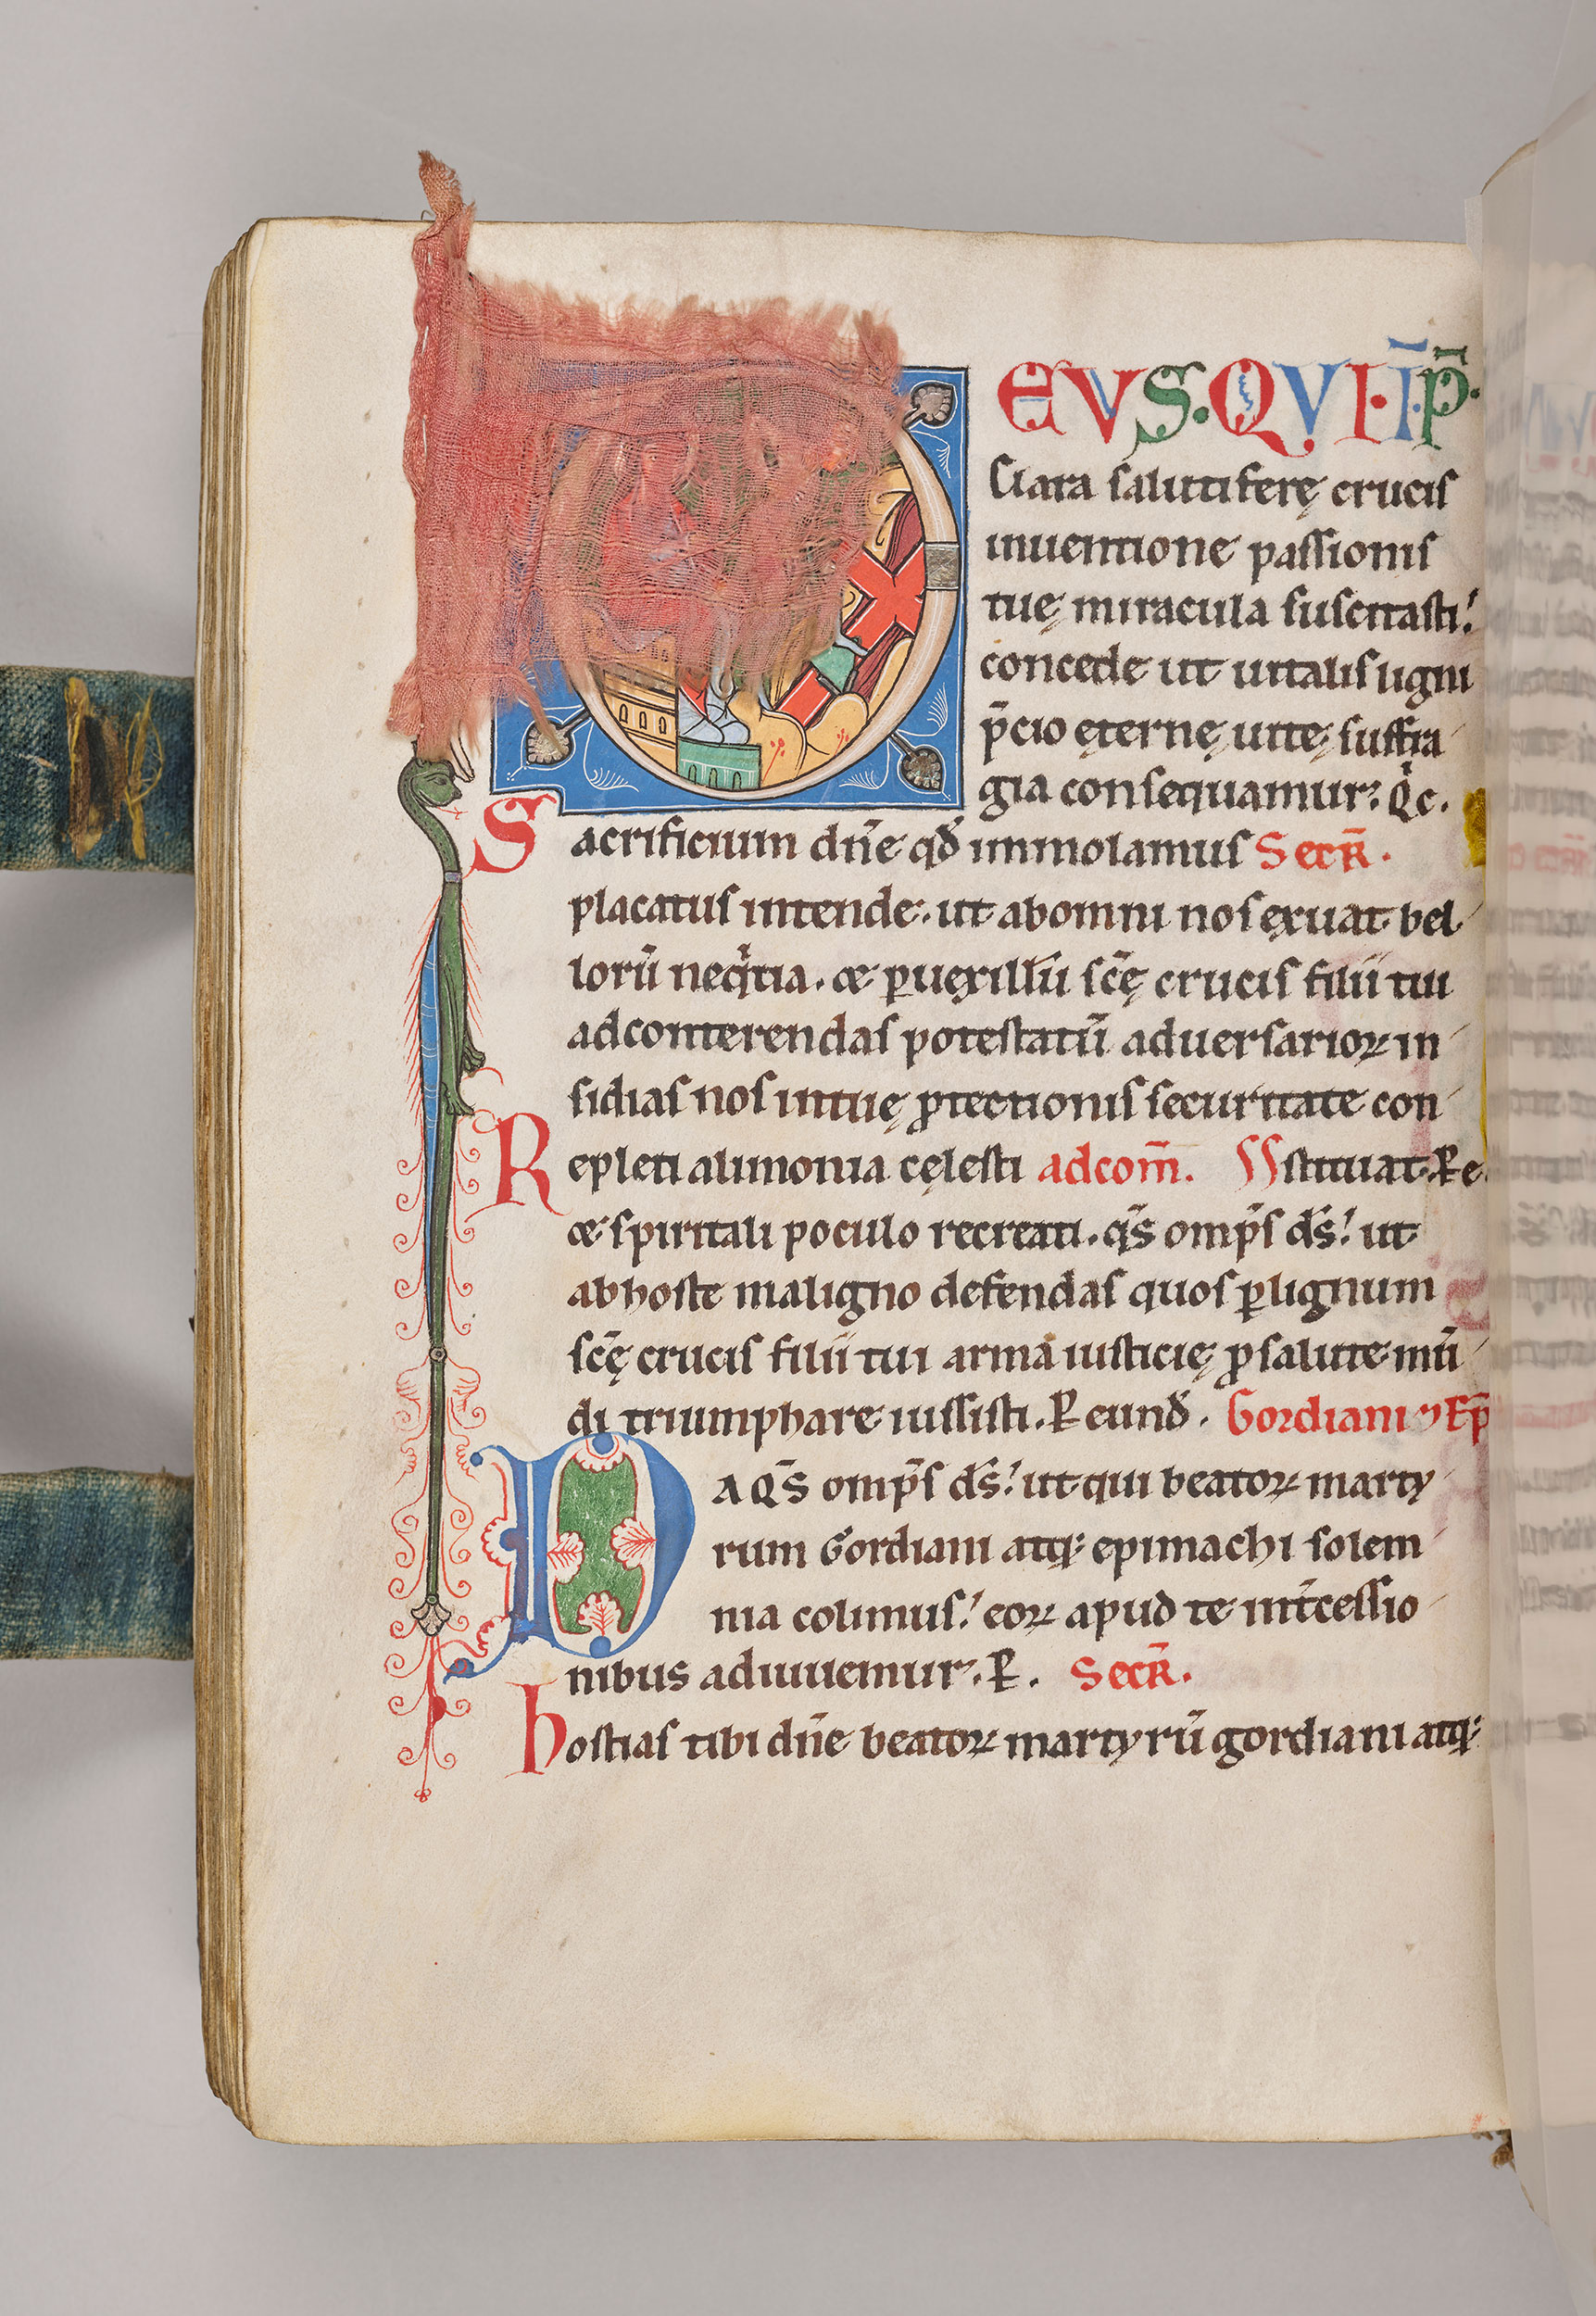 EVS·QVI·I̅·p̅·
clara salutiferę crucis
inuentione passionis
tuę miracula suscitasti!
concede ut uitalis ligni
p̄cio ęternę uitę suffra
gia consequamur. Q̇ c.
Sacrificium dn̄e qđ immolamus Secr̄.
placatus intende. ut abomni nos exuat bel
lorū neq̇tia. & ꝑuexillū sc̄ę crucis filii tui
adconterendas potestatū aduersarioꝝ in
sidias nos intuę ꝓtectionis securitate con
Repleti alimonia cęlesti adcom̄. stituat. Ꝑ e
& spiritali poculo recreati. qs̄ omp̄s ds̄! ut
abhoste maligno defendas quos ꝑ lignum
sc̄ę crucis filii tui arma iusticię ꝓ salute mū
di triumphare iussisti. Ꝑ eunđ. Gordiani ⁊ Ep̄
DA QS̄ omp̄s ds̄! ut qui beatoꝝ marty
rum Gordiani atq; epimachi solem
nia colimus! eoꝝ apud te int̄cessio
nibus adiuuemur. Ꝑ. Secr̄.
hostias tibi dn̄e beatoꝝ martyrū gordiani atq;